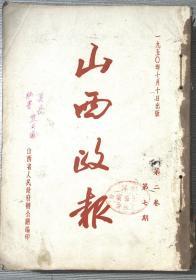 一九五〇年十月十日出版
山西政报
第二卷
第七期
山西省人民政府办公厅编印